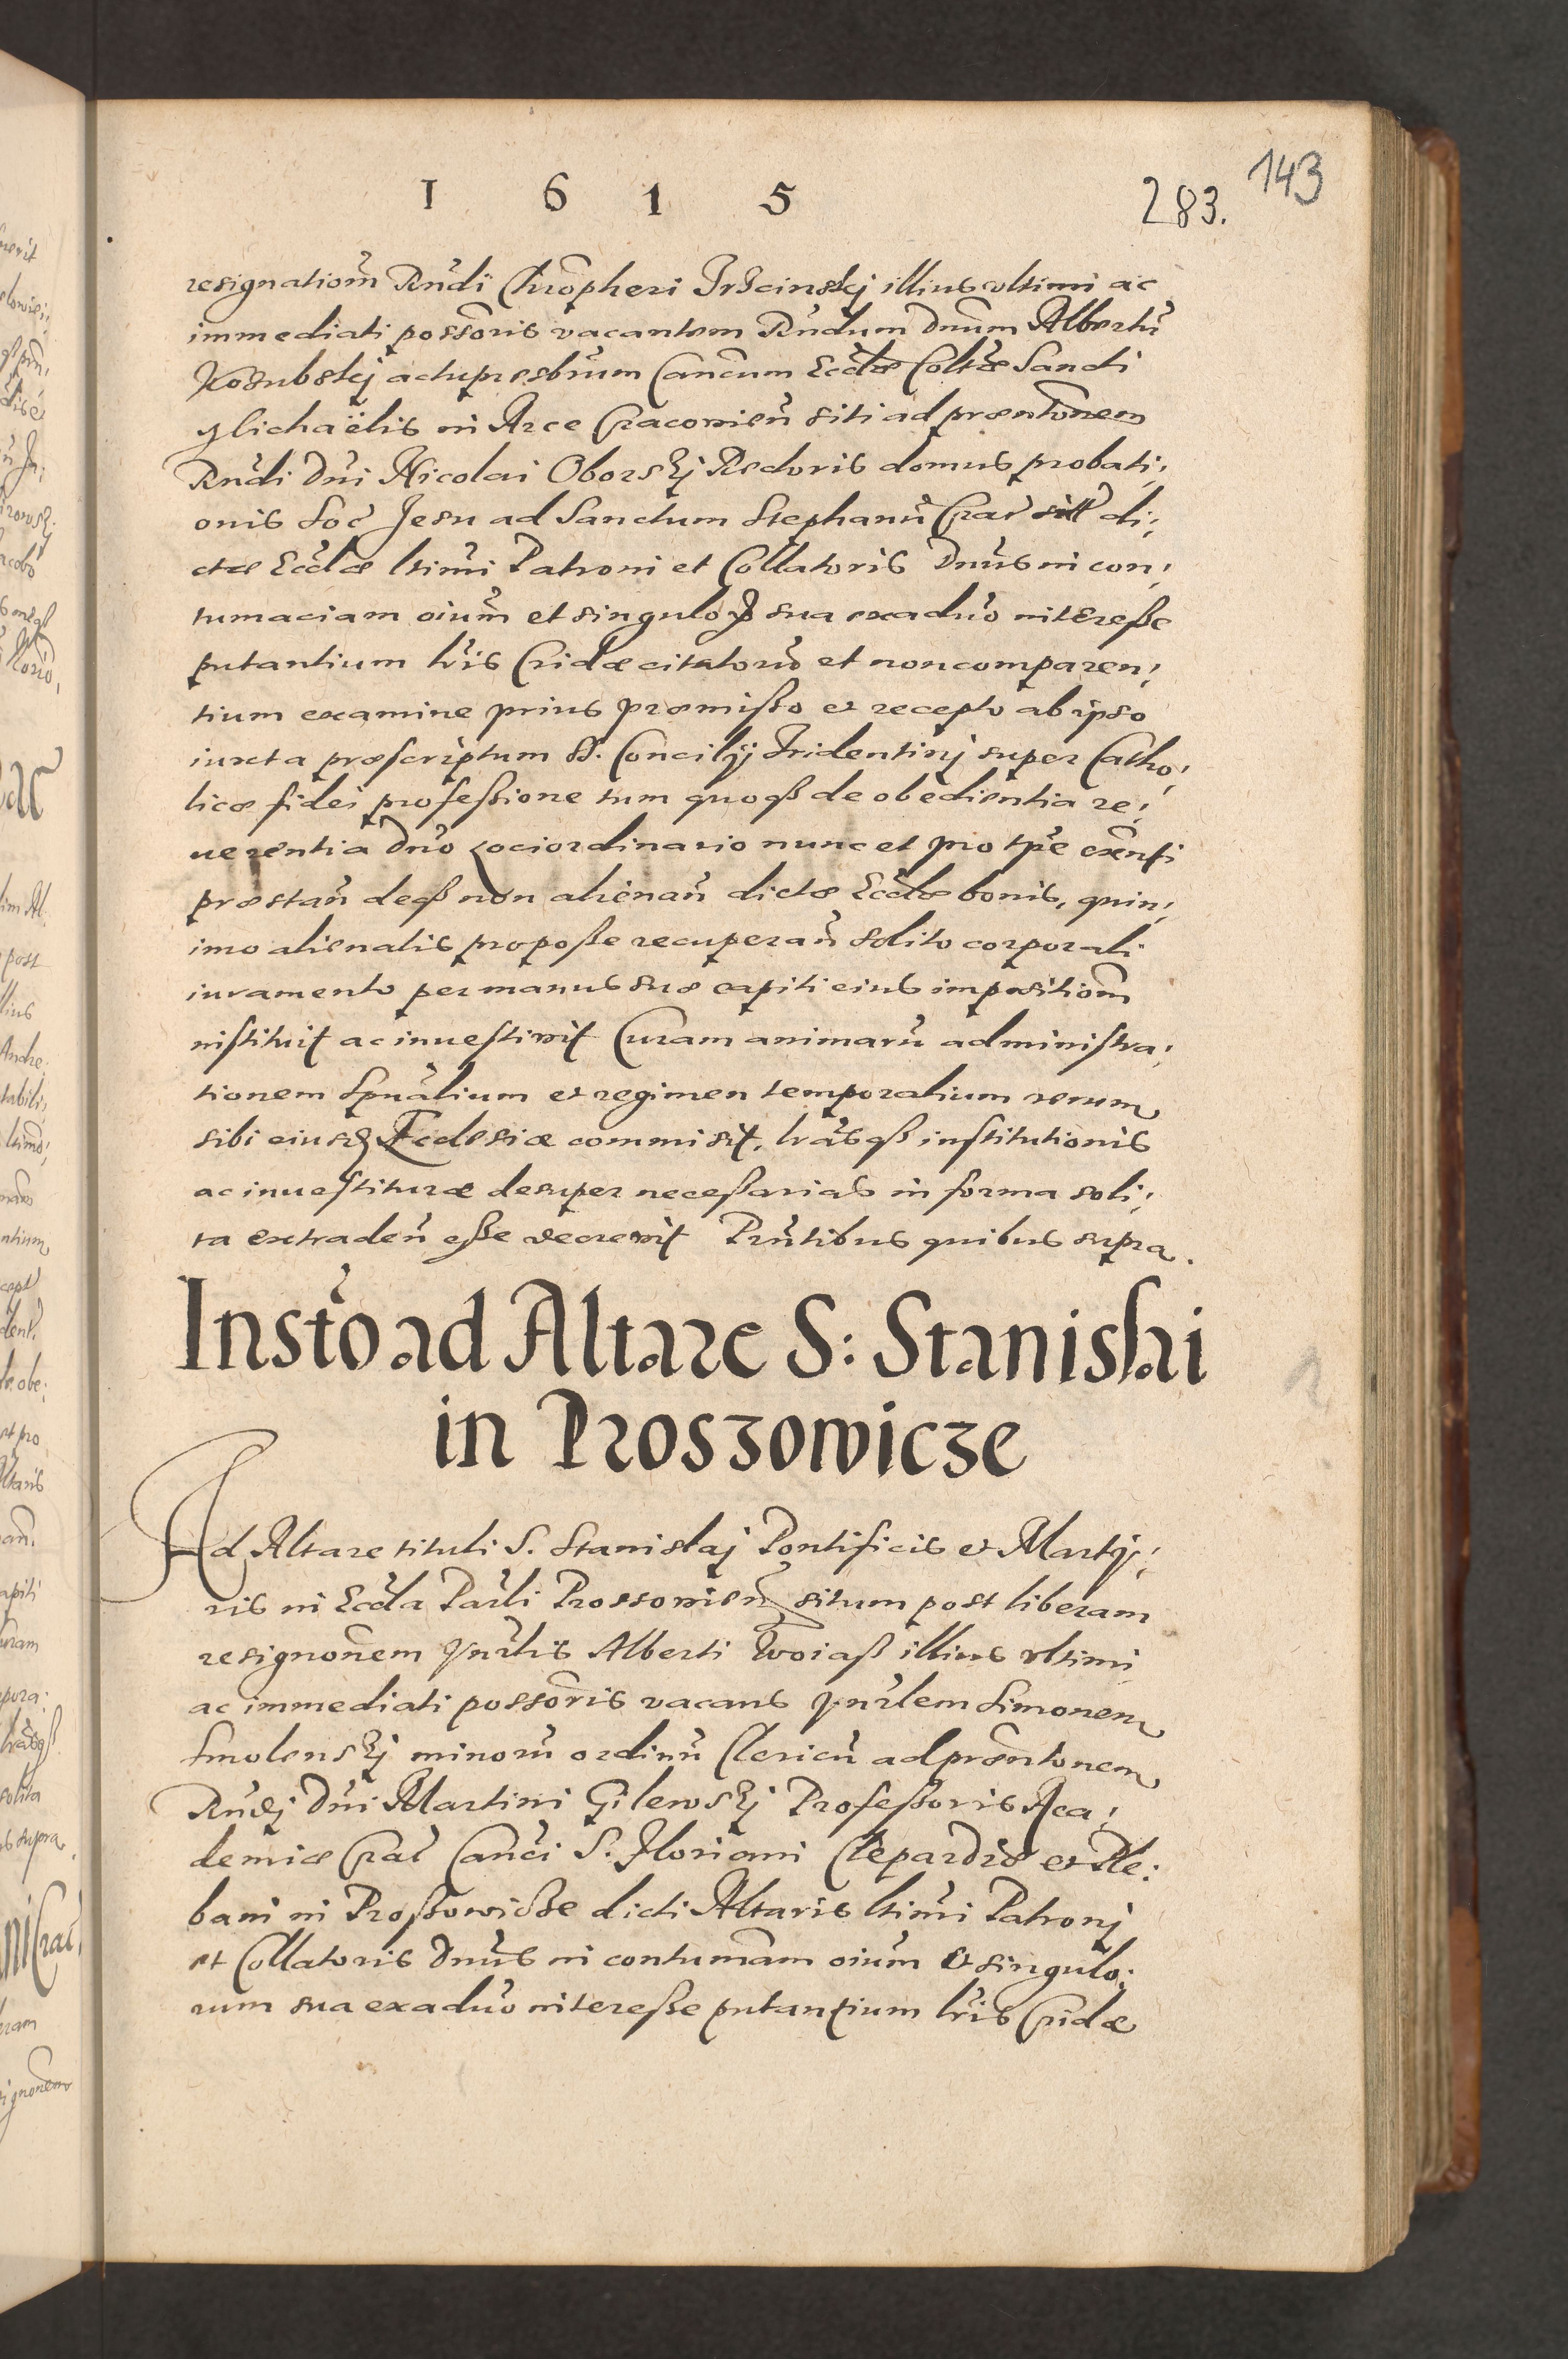 1 6 1 5
283. 143
resignatiom̃ Rũdi Chrõpheri Trzcinskj illius ultimi ac
immediati possõris vacantem Rũdum Dnũm Albertũ
Kosubskj actupresbr̃um Canc̃um Eccl̃æ Colt̃æ Sancti
Michaëlis in Arce Cracovień siti ad præntõnem
Rũdi Dñi Nicolai Oborskj Rectoris domus probati,
onis Soc̃ Jesu ad Sanctum Stephanũ Crac̃ di,
ctæ Eccl̃æ ltim̃i Patroni et Collatoris Dnũs in con,
tumaciam oium̃ et singuloꝝ sua exaduo interesse
putantium lr̃is Cridæ citatorũ et non comparen,
tium examine prius præmisso et recepto ab ipso
iuxta præscriptum SS. Concilÿ Tridentinj super Catho,
licæ fidei professione tum quoqß de obedientia re,
uerentia Dño Loci ordinario nunc et pro tp̃e exẽnti
præstañ deqß non alienañ dictæ Eccl̃æ bonis, quin,
imo alienatis pro posse recuperañ solito corporali
iuramento per manus suæ capiti eius impositiom̃
instituit ac inuestivit Curam animarũ administra,
tionem Spuãlium et regimen temporalium rerum
sibi eiusđ Ecclesiæ commisit, lrãsqß institutionis
ac inuestituræ desuper necessarias in forma soli,
ta extradeñ esse decrevit Prñtibus quibus supra.
Instõ ad Altare S: Stanislai
in Proszowicze
Ad Altare tituli S. Stanislaj Pontificis et Martÿ,
ris in Eccl̃a Par̃li Prossovień situm post liberam
resignonẽm Hnr̃lis Alberti Woiaß illius ultimi
ac immediati possõris vacans Hnr̃lem Simonem
Smolenskj minorũ ordinũ Clericũ ad præntonẽm
Rũdj Dñi Martini Gilewskj Professoris Aca,
demiæ Crac̃ Canc̃i S. Floriani Clepardiæ et Ple,
bani in Proßowicze dicti Altaris ltim̃i Patronj
et Collatoris Dnũs in contumãm oium̃ et singulo,
rum sua exaduo interesse putantium lr̃is Cridæ